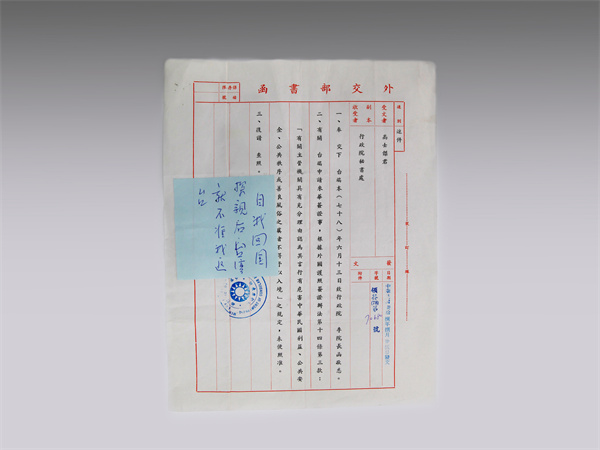 外交部書函
受文者
副本
收受者
行政院秘書處
發文
日期
字號
附件
號
一、奉 交下 台端本(七十八)年六月十三日致行政院 李院長函敬悉。
二、有關 台端申請來華簽證事,根據外國護照簽證辦法第十四條第三款:
「有關主管機關具有充分理由認為其言行有危害中華民國利益、公共安
全、公共秩序或善良風俗之虞者不得予以入境」之規定,未便照准。
三、復請 查照。
自我回国
探親后台湾
就不准我返
台